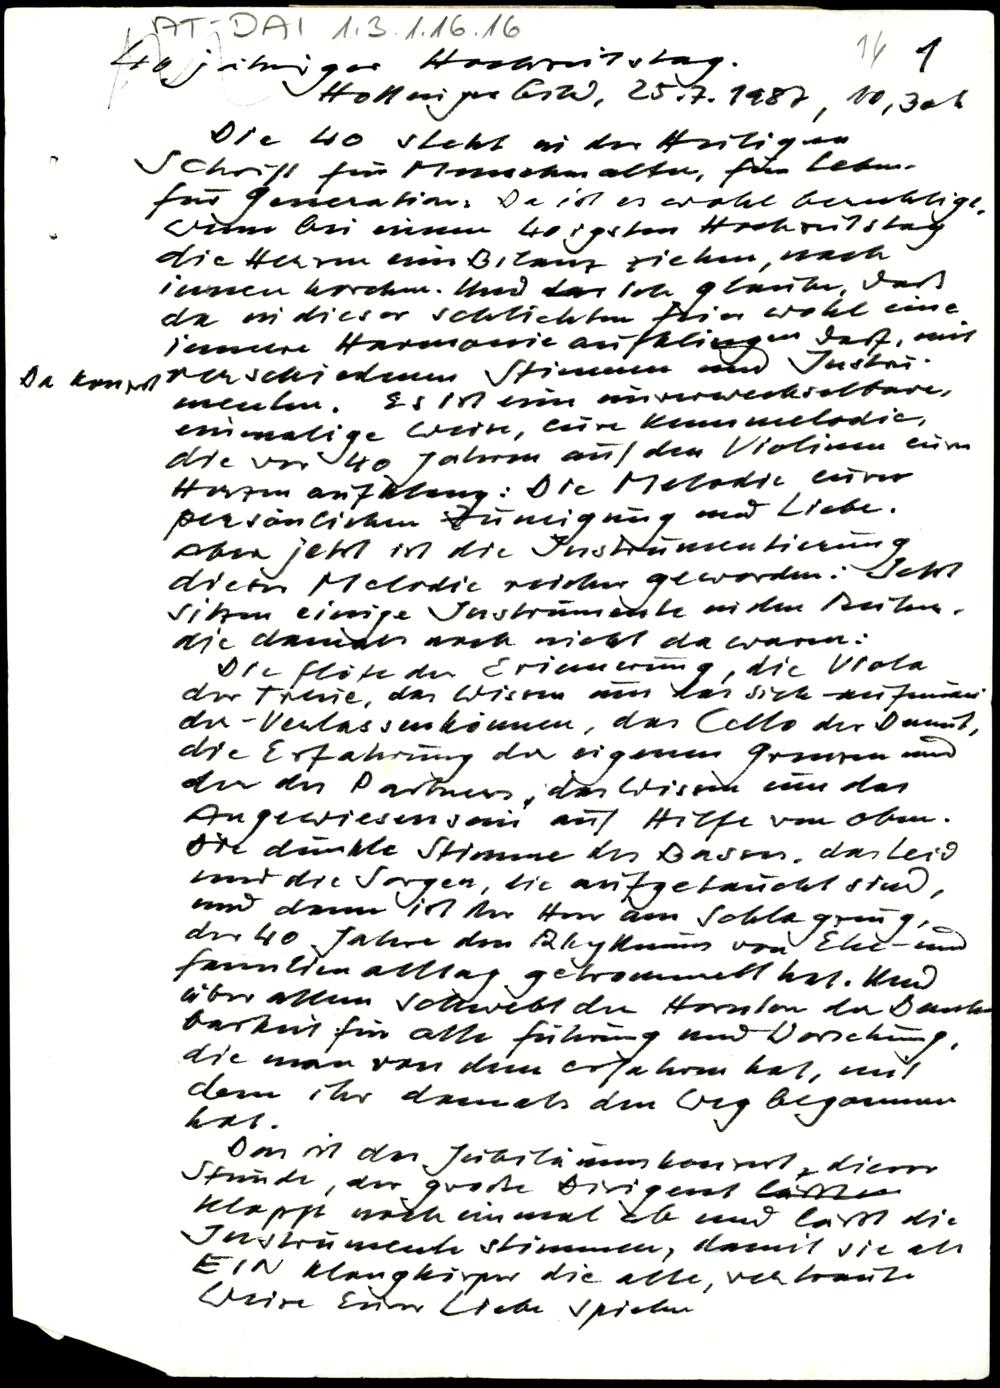 AT-DAI 1.3.1.16.16
14 1
40 jähriger Hochzeitstag.
25.7.1987, 10,30h
Die 40 steht in der Heiligen
Schrift für Menschenalter, für Leben.
für Generation. Da ist es wohl berechtigt,
wenn bei einem 40igsten Hochzeitstag
die Herzen eine Bilanz ziehen, nach
innen horchen. Und ich glaube, daß
da in dieser schlichten Feier wohl eine
innere Harmonie aufklingen darf, mit
Da konzert
verschiedenen Stimmen und Instru-
menten. Es ist eine unverwechselbare,
einmalige Weise, eure Kennmelodie,
die vor 40 Jahren auf den Violinen eurer
Herzen aufklang: Die Melodie eurer
persönlichen Zuneigung und Liebe.
Aber jetzt ist die Instrumentierung
dieser Melodie reicher geworden: Jetzt
sitzen einige Instrumente in den Reihen,
die damals noch nicht da waren:
Die Flöte der Erinnerung, die Viola
der Treue, das Wissen um das Sich-aufeinan-
der-Verlassenkönnen, das Cello der Demut,
die Erfahrung der eigenen Grenzen und
der des Partners, das Wissen um das
Angewiesensein auf Hilfe von oben.
Die dunkle Stimme des Basses, das Leid
und die Sorgen, die aufgetaucht sind,
und dann ist der Herr am Schlagzeug,
der 40 Jahre den Rhythmus von Ehe- und
Familienalltag getrommelt hat. Und
über allem schwebt der Hornton der Dank-
barkeit für alle Führung und Vorsehung,
die man von dem erfahren hat, mit
dem ihr damals den Weg begonnen
hat.
Das ist das Jubiläumskonzert dieser
Stunde, der große Dirigent
klopft noch einmal ab und läßt die
Instrumente stimmen, damit sie als
EIN Klangkörper die alte, vertraute
Weise Eurer Liebe spielen